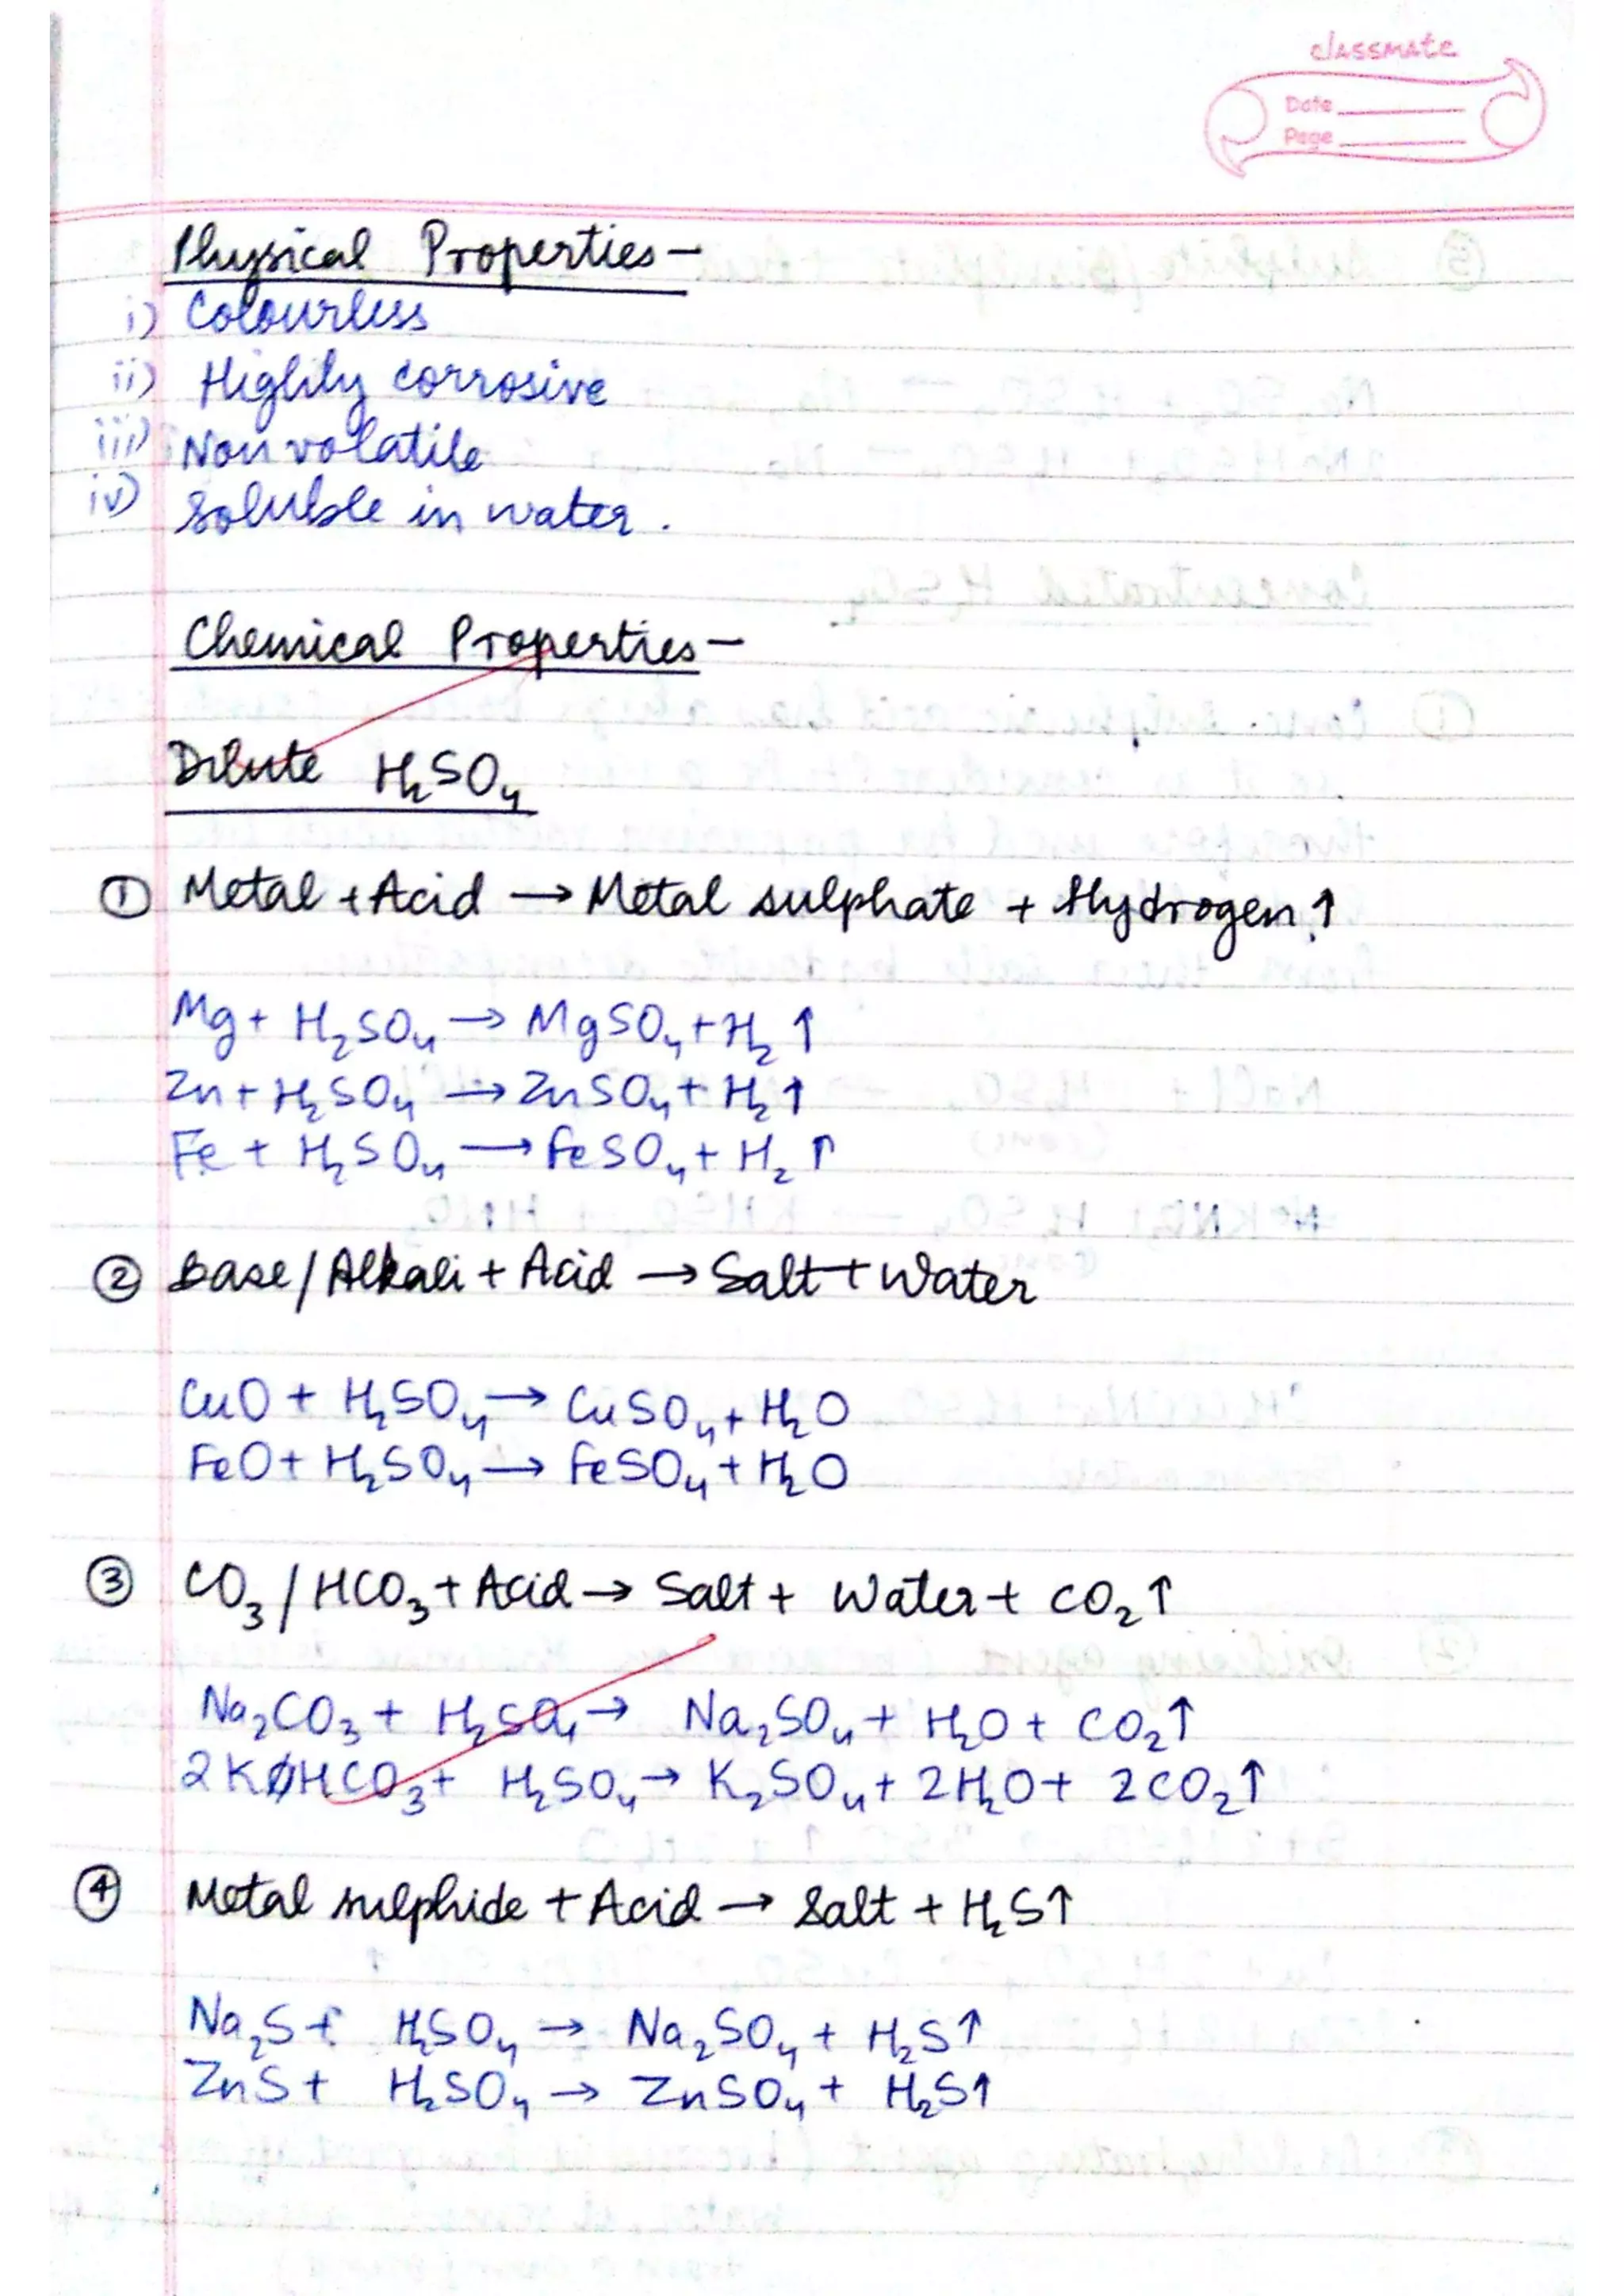 classmate
Date
Page
Physical Properties-
i) Colourless
ii) Highly corrosive
iii) Non volatile
iv) Soluble in water.
Chemical Properties-
Dilute H₂SO₄
① Metal + Acid → Metal sulphate + Hydrogen ↑
Mg + H₂SO₄ → MgSO₄ + H₂ ↑
Zn + H₂SO₄ → ZnSO₄ + H₂ ↑
Fe + H₂SO₄ → FeSO₄ + H₂ ↑
② Base / Alkali + Acid → Salt + Water
CuO + H₂SO₄ → CuSO₄ + H₂O
FeO + H₂SO₄ → FeSO₄ + H₂O
③ CO₃ / HCO₃ + Acid → Salt + Water + CO₂ ↑
Na₂CO₃ + H₂SO₄ → Na₂SO₄ + H₂O + CO₂ ↑
2KHCO₃ + H₂SO₄ → K₂SO₄ + 2H₂O + 2CO₂ ↑
④ Metal sulphide + Acid → Salt + H₂S ↑
Na₂S + H₂SO₄ → Na₂SO₄ + H₂S ↑
ZnS + H₂SO₄ → ZnSO₄ + H₂S ↑